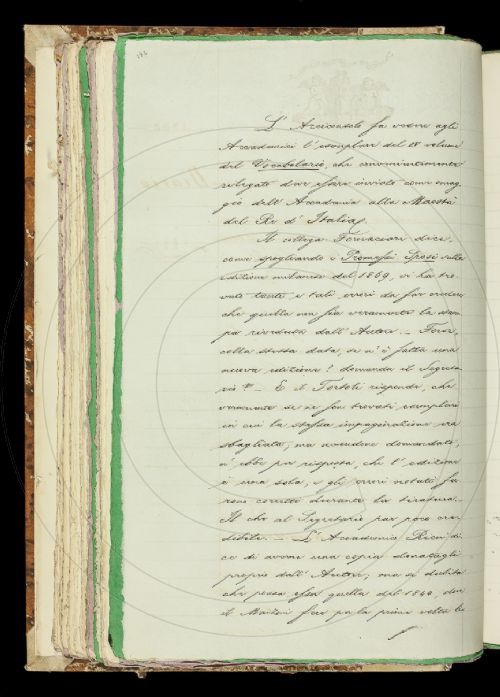 L' Arciconsolo fa vedere agli
Accademici l' esemplare del IV volume
del Vocabolario, che
rilegato deve essere inviato come omag
gio dell' Accademia alla Maestà
del Re d' Italia.
Il collega Fornaciari dice,
come spogliando i Promessi Sposi nella
edizione milanese del 1869, vi ha tro
vato tanti e tali errori da far credere
che quella non sia veramente la stam
pa riveduta dall' Autore. — Forse
colla stessa data, se n' è fatta una
nuova edizione? domanda il Segreta
rio — E il Tortoli risponde, che
veramente se ne son trovati esemplari
in cui la stessa impaginazione era
sbagliata; ma avendone domandato,
n' ebbe per risposta, che l' edizione
è una sola, e gli errori notati fu
rono corretti durante la tiratura. —
Il che al Segretario par poco cre
dibile. — L' Accademico Ricci di
ce di averne una copia donatagli
proprio dall' Autore, ma si dubita
che possa essere quella del 1840, dove
il Manzoni fece per la prima volta le